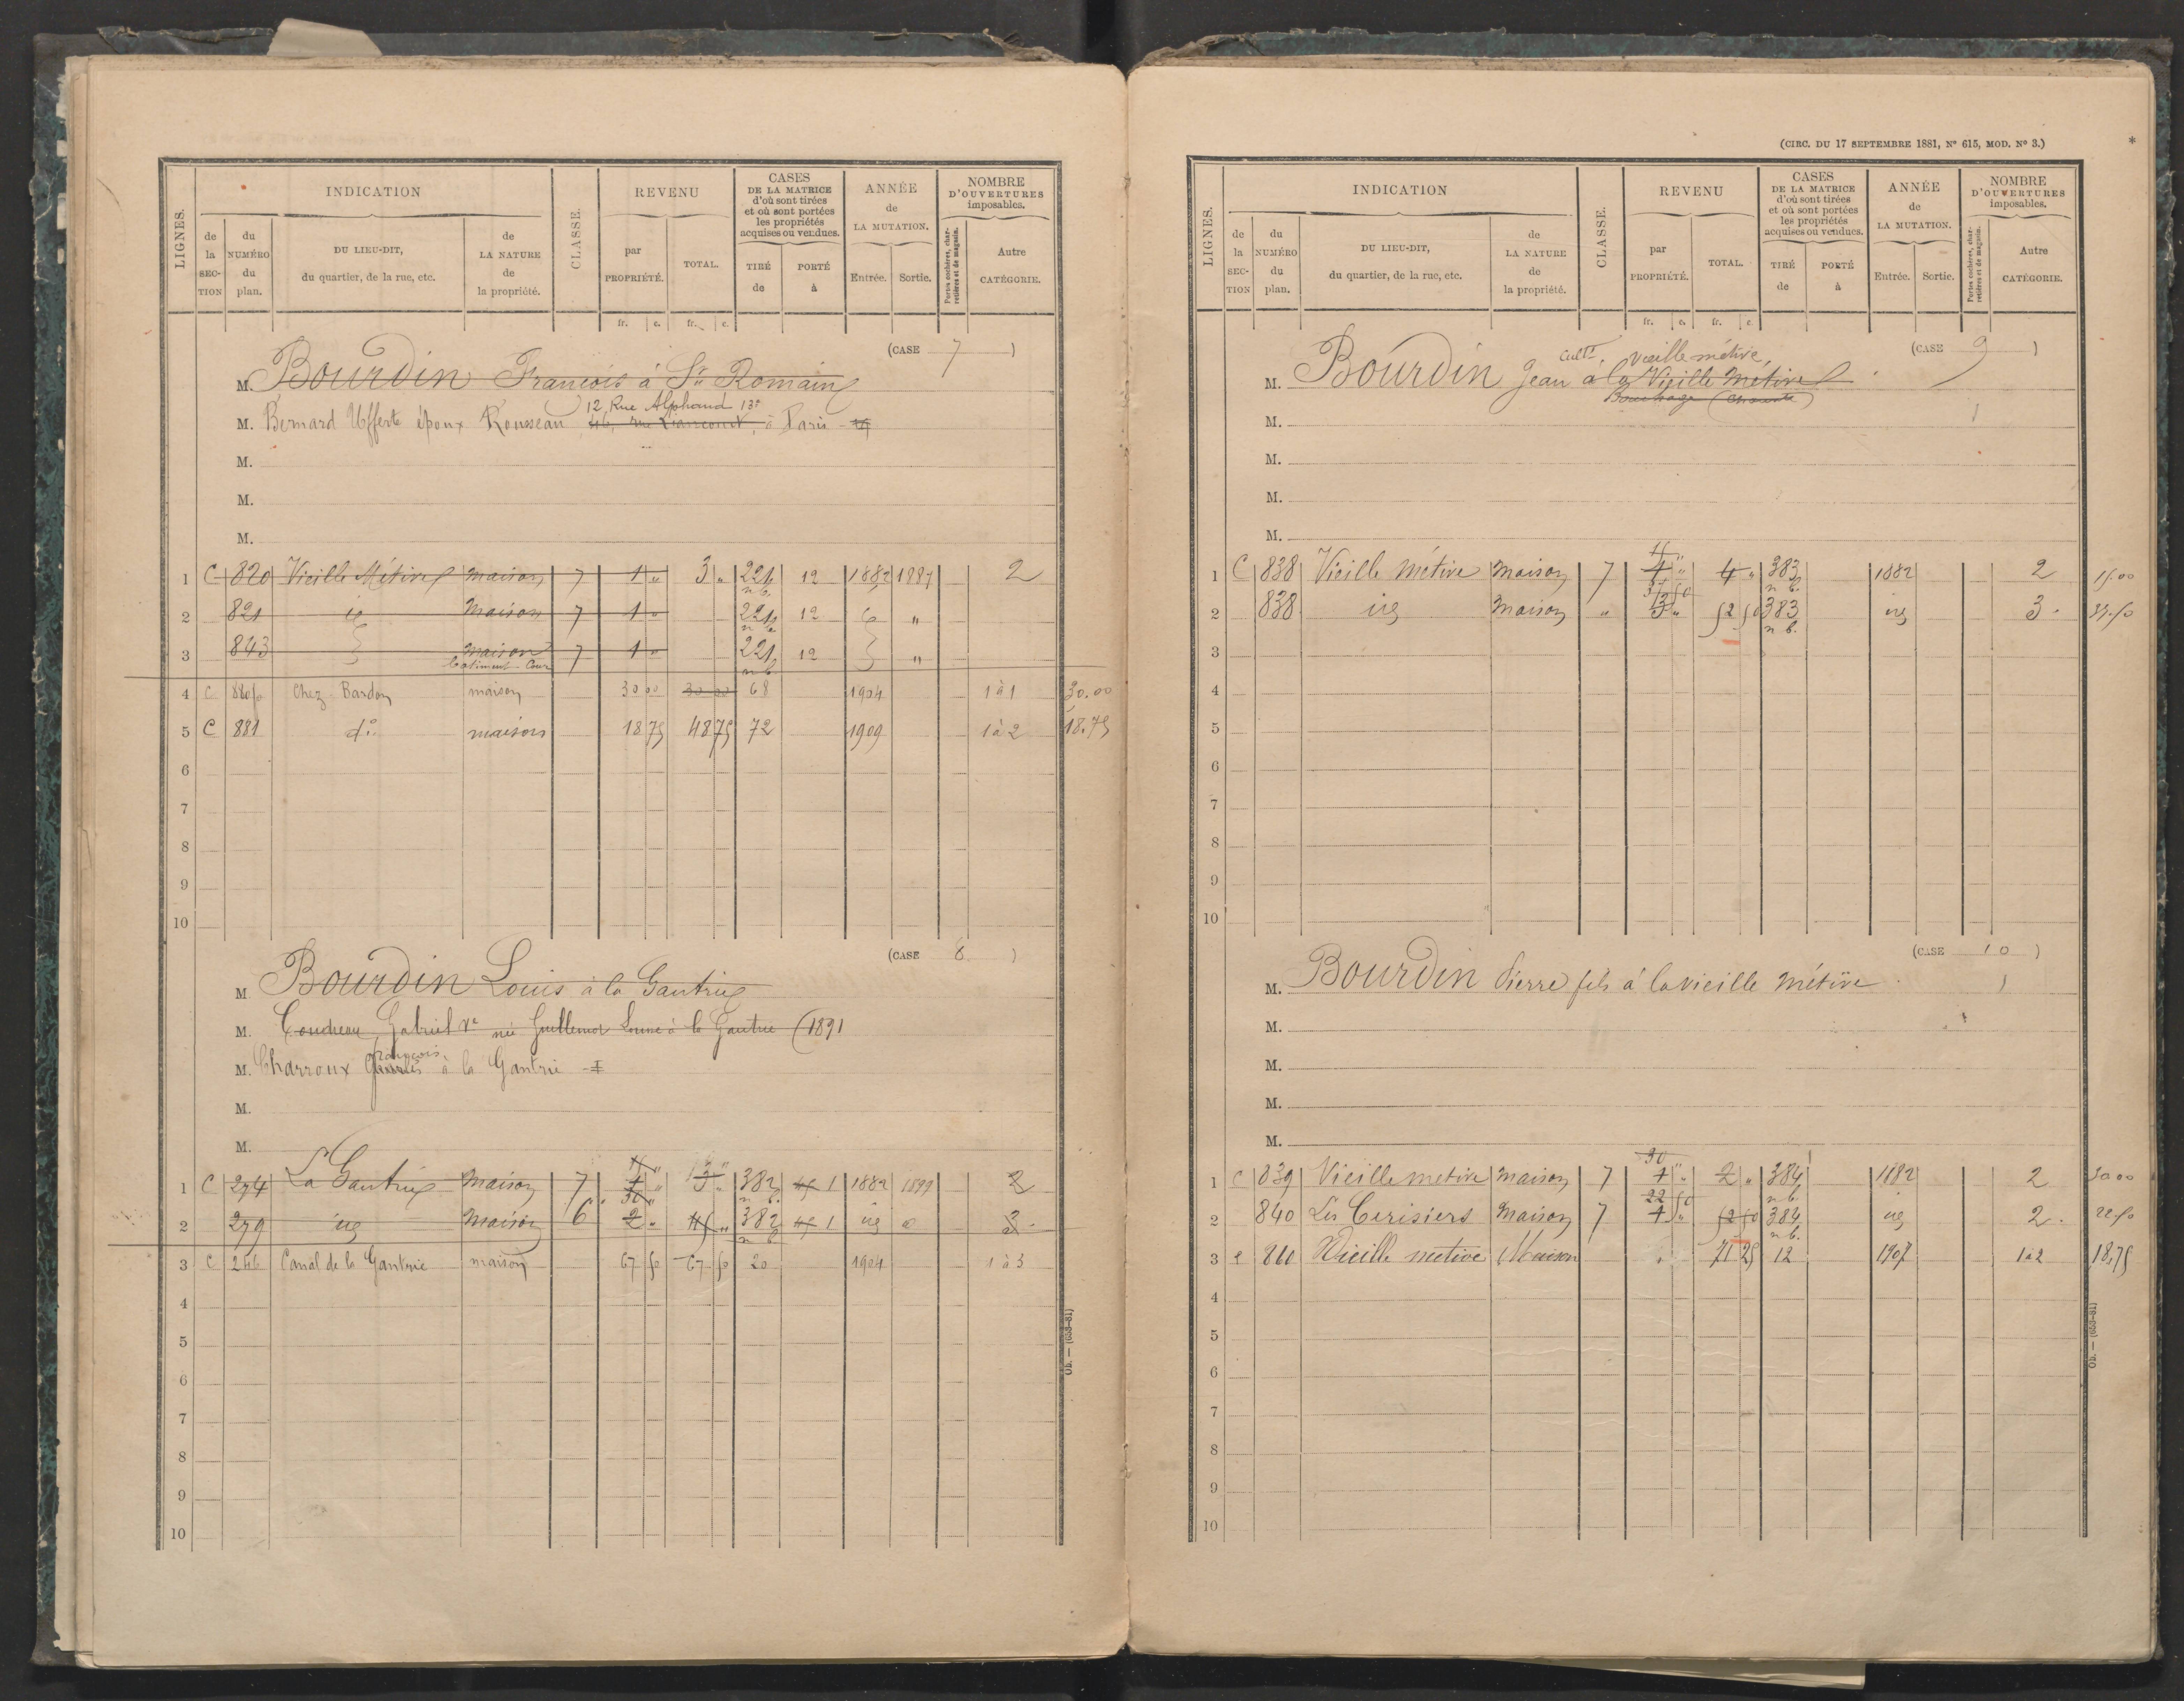 LIGNES.
INDICATION
de la SECTION
du NUMÉRO du plan.
DU LIEU-DIT, du quartier, de la rue, etc.
de LA NATURE de la propriété.
CLASSE.
REVENU
par PROPRIÉTÉ.
TOTAL.
fr. c. fr. c.
CASES DE LA MATRICE d'où sont tirées et où sont portées les propriétés acquises ou vendues.
TIRÉ de
PORTÉ à
ANNÉE de LA MUTATION.
Entrée. Sortie.
NOMBRE D'OUVERTURES imposables.
Portes cochères, charretières et de magasin.
Autre CATÉGORIE.
(CASE 7 )
M. Bourdin François à St Romain
12, Rue Alphand 13e
M. Bernard époux Rousseau à Paris
M.
M.
M.
1 C 820 Vieille Métive maison 7 1 " 3 " 221 n b. 12 1882 1887 2
2 821 id maison 7 1 " 221 12 "
3 843 maison 7 1 " 221 n b. 12 "
batiment - Cour
4 C 880 Chez Bardon maison 30 00 30 00 68 1904 1 à 1 30.00
5 C 881 do maison 18 75 48 75 72 1909 1 à 2 18.75
6
7
8
9
10
(CASE 8 )
M. Bourdin Louis à la Gautrie
M. Coudreau Gabriel Ve née Guillemot à la Gautrie (1891
François
M. Charroux à la Gautrie
M.
M.
1 C 274 La Gautrie maison 7 3 " 382 n b. 1 1882 1899 2
2 279 id maison 6 2 " 382 n b. 1 id
3 C 246 Canal de la Gautrie maison 67 50 67 50 20 1904 1 à 3
4
5
6
7
8
9
10
Ob. — (653-81)
(CIRC. DU 17 SEPTEMBRE 1881, No 615, MOD. No 3.)
*
LIGNES.
INDICATION
de la SECTION
du NUMÉRO du plan.
DU LIEU-DIT, du quartier, de la rue, etc.
de LA NATURE de la propriété.
CLASSE.
REVENU
par PROPRIÉTÉ.
TOTAL.
fr. c. fr. c.
CASES DE LA MATRICE d'où sont tirées et où sont portées les propriétés acquises ou vendues.
TIRÉ de
PORTÉ à
ANNÉE de LA MUTATION.
Entrée. Sortie.
NOMBRE D'OUVERTURES imposables.
Portes cochères, charretières et de magasin.
Autre CATÉGORIE.
(CASE 9 )
cultr. Vieille métive,
M. Bourdin Jean à la Vieille Métive
M. 1
M.
M.
M.
1 C 838 Vieille métive maison 7 4 " 4 " 383 n b. 1882 2 15.00
2 838 id maison " 3 " 52 50 383 n b. id 3 37.50
3
4
5
6
7
8
9
10
(CASE 10 )
M. Bourdin Pierre fils à la vieille métive 1
M.
M.
M.
M.
30 "
1 C 839 Vieille metive maison 7 1 " 2 " 384 n b. 1882 2 30 00
22 50
2 840 Les Cerisiers maison 7 1 " 52 50 384 n b. id 2 22.50
3 C 860 Vieille metive Maison 71 25 12 1907 1 à 2 18.75
4
5
6
7
8
9
10
Ob. — (653-81)